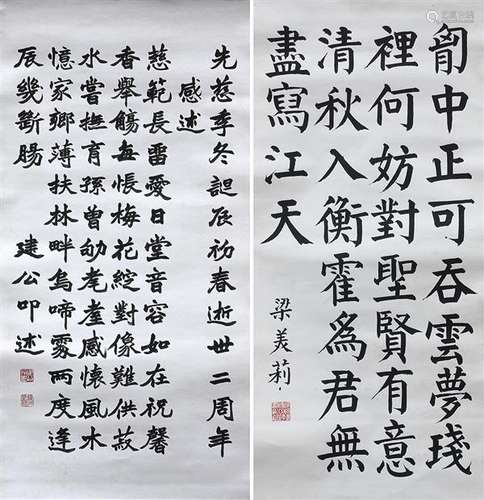 胷中正可吞雲夢琖
裡何妨對聖賢有意
清秋入衡霍爲君無
盡寫江天
梁美莉
先慈季冬誕辰初春逝世二周年
感述
慈範長留愛日堂音容如在祝馨
香舉觴每悵梅花綻對像難供菽
水嘗撫育孫曾劬耄耋感懷風木
憶家鄉薄扶林畔烏啼霧兩度逢
辰幾斷腸
建公叩述